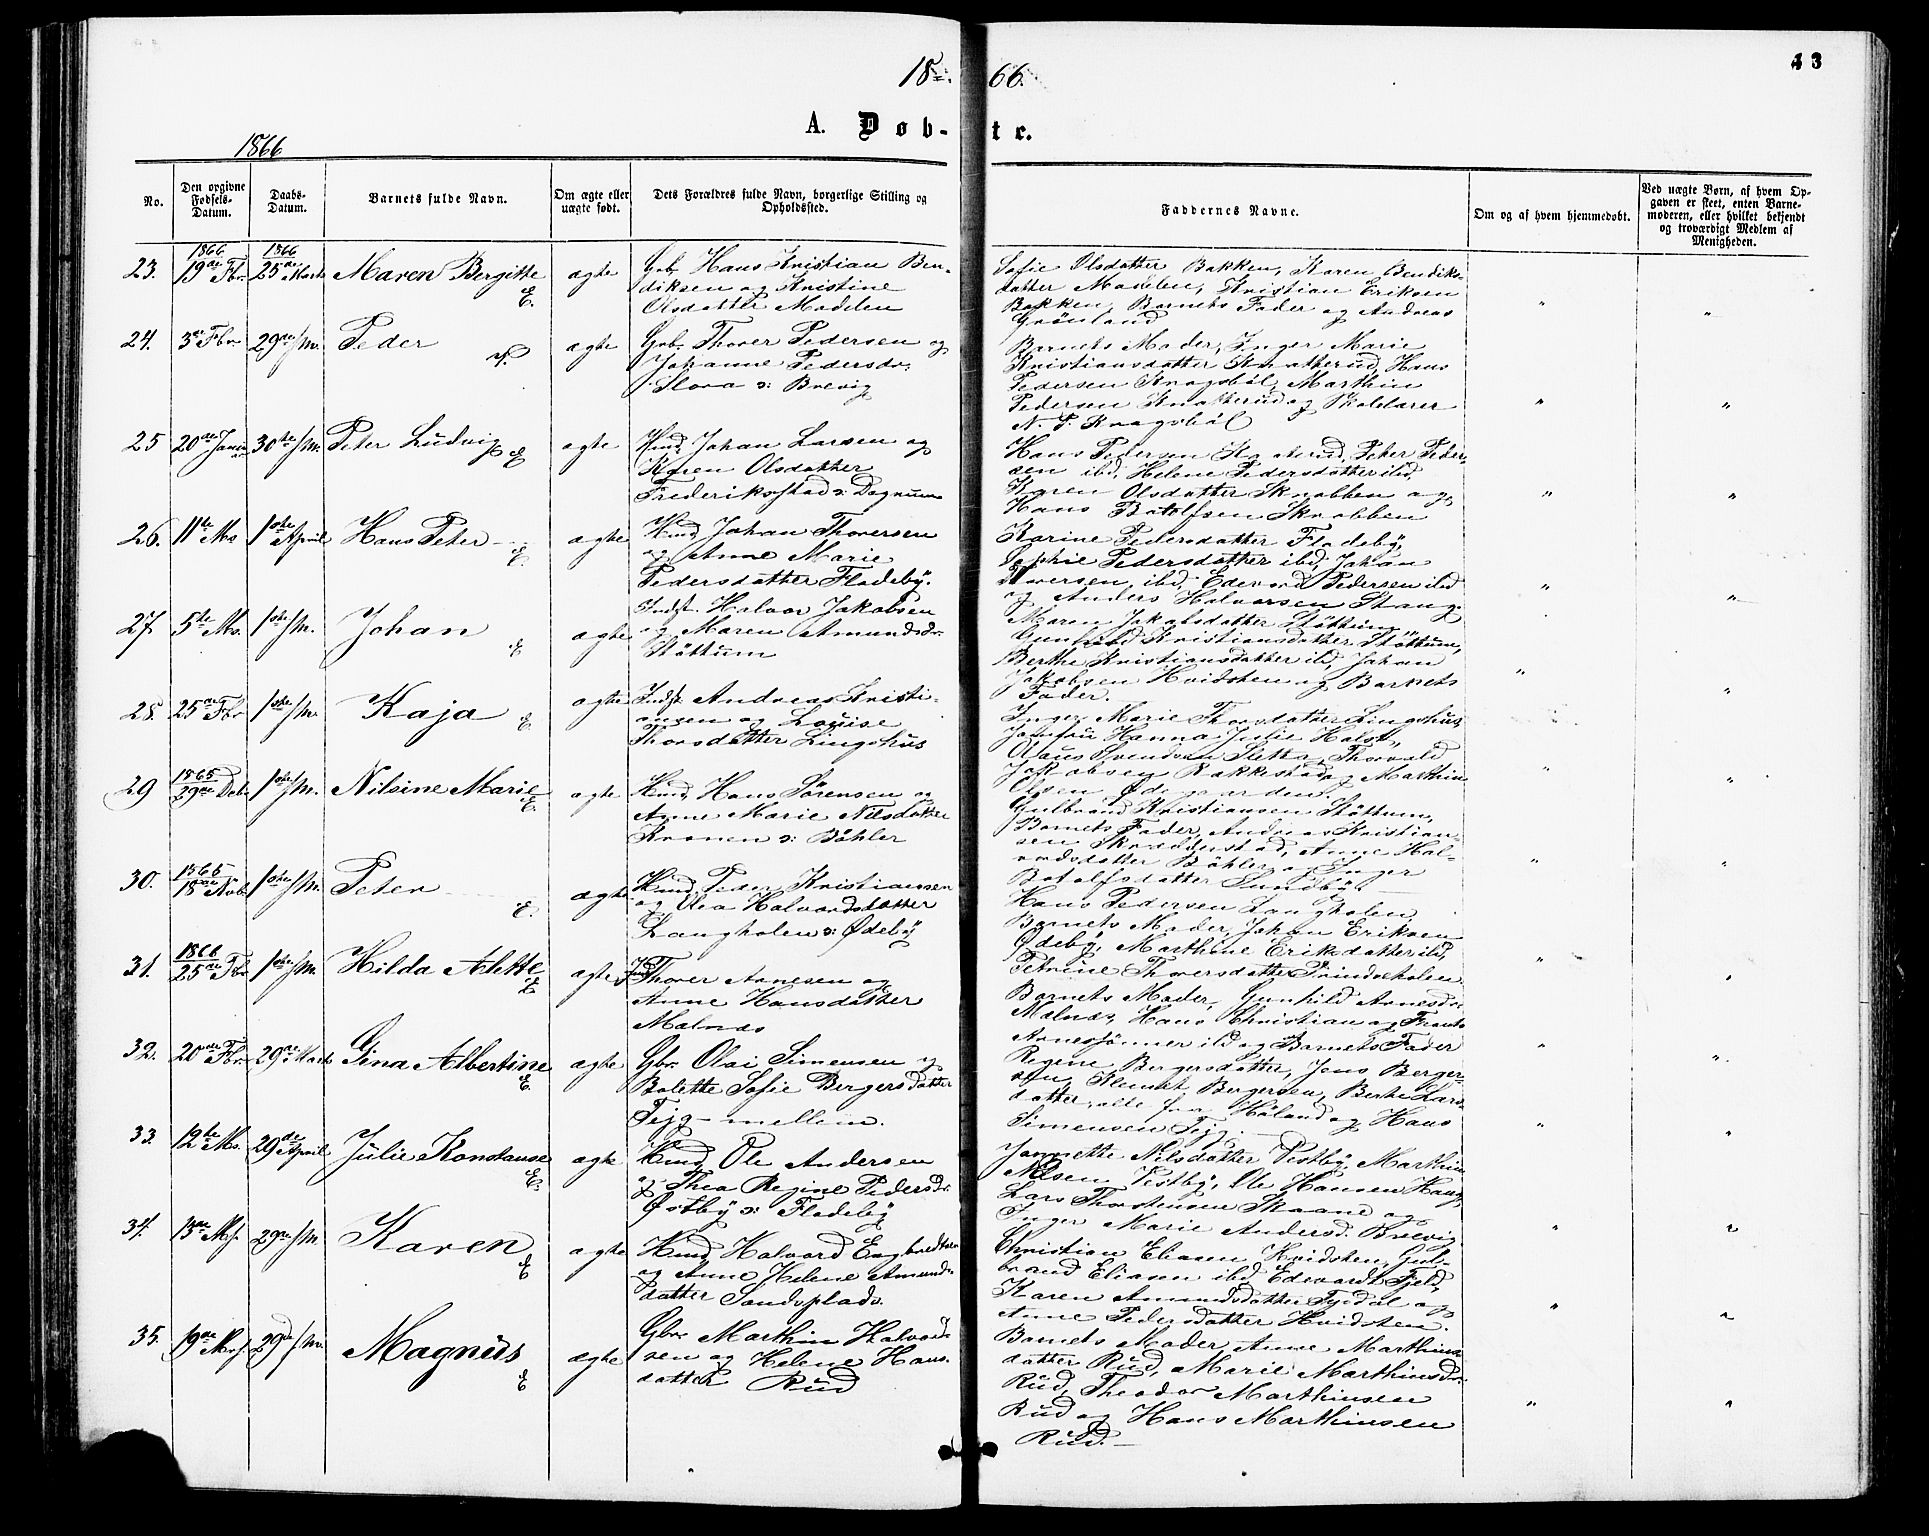 18 66.
43
A. Døb- te.
1866
No.
Den opgivne Fødsels-Datum.
Daabs-Datum.
Barnets fulde Navn.
Om ægte eller uægte født.
Dets Forældres fulde Navn, borgerlige Stilling og Opholdssted.
Faddernes Navne.
Om og af hvem hjemmedøbt.
Ved uægte Børn, af hvem Opgaven er skeet, enten Barnemoderen, eller hvilket bekjendt og troværdigt Medlem af Menigheden.
1866 1866
23. 19de Fbr. 25de Marts Maren Bergitte E. ægte
Gbr. Hans Kristian Ben-
diksen og Kristine
Olsdatter Modelen
Sofie Olsdatter Bakken, Karen Bendiks-
datter Modelen, Kristian Eriksen
Bakken, Barnets Fader og Andreas
Grönland
24. 3de Fbr. 29de s/m. Peder ægte
Gbr. Thorer Pedersen og
Johanne Pedersdr.
Slora o: Brevig
Barnets Moder, Inger Marie
Kristiansdatter Knatterud, Hans
Pedersen Kragsböl, Marthin
Pedersen Knatterud og Skolelærer
N. P. Kragsböl
25 20de Januar 30te s/m. Peter Ludvig E ægte
Hmd. Johan Larsen og
Karen Olsdatter
Frederiksstad o: Degnum
Hans Pedersen Knatterud, Peter Peder-
sen ibd, Helene Pedersdatter ibd,
Karen Olsdatter Skrabben og
Hans Botolfsen Skrabben
26. 11te Ms 1ste April Hans Peter E ægte
Hmd. Johan Thoresen
og Anne Marie
Pedersdatter Fladeby.
Karine Pedersdatter Fladeby,
Sophie Pedersdatter ibd, Johan
Thoresen, ibd, Edevard Pedersen ibd
og Anders Halvorsen Stang.
27. 5te Ms. 1ste s/m. Johan E ægte
Indst. Halvor Jakobsen
og Maren Amundsdr.
Støttum
Maren Jakobsdatter Støttum
Gunhild Kristiansdatter Støttum,
Berthe Kristiansdatter ibd, Johan
Jakobsen Hvidsten og Barnets
Fader.
28. 25de Fbr 1ste s/m. Kaja E. ægte
Indst Andreas Kristi-
ansen og Louise
Thorsdatter Lingshus
Inger Marie Thorsdatter Lingshus,
Jomfru Hanna Julie Holst,
Olaus Svendsen Sletta, Thorvald
Jakobsen Rakkestad og Marthin
Olsen Ødegaarden.
1865
29 29de Debr 1ste s/m. Nilsine Marie E. ægte
Hmd. Hans Sörensen og
Anne Marie Nilsdatter
Kronen o: Böhler
Gulbrand Kristiansen Støttum,
Barnets Fader, Andreas Kristian-
sen Skredderstad, Anne Hal-
vorsdatter Böhler og Inger
Botolfsdatter Sundby
1865
30. 18de Novbr 1ste s/m. Peter E. ægte
Hmd. Peder Kristiansen
og Olea Halvorsdatter
Langholen o: Ødeby
Hans Pedersen Langholen
Barnets Moder, Johan Eriksen
Ødeby, Marthine Eriksdatter ibd,
Petrine Thorersdatter
1866
31. 25de Fbr 1ste s/m. Hilda Alette E ægte
Thorer Arnesen og
Anne Hansdatter
Malnæs
Barnets Moder, Gunhild Arnesdr
Malnæs, Hans Christian og
Arnesønner ibd og Barnets Fader
32. 20de Fbr. 29de Marts Gina Albertine E. ægte
Gbr. Olai Simensen og
Bolette Sofie Bergersdatter
Tejg-mellem.
Regine Bergersdatter, Jens Berger-
sen, Klemet Bergersen, Berthe Lars-
datter, alle fra Höland og Hans
Simensen Tejg.
33. 12te Ms. 29de April Julie Konstanse E. ægte
Hmd. Ole Andersen
og Thea Regine Pedersdr.
Østby o: Fladeby
Jannette Nilsdatter Vestby, Marthin
Nilsen Vestby, Ole Hansen Haug,
Lars Thorstensen Skaane og
Inger Marie Andersd. Brevig.
34. 13de Ms. 29de s/m Karen E ægte
Hmd. Halvard Engbretsen
og Anne Helene Amunds-
datter Sandsplads.
Christian Eliasen Hvidsten, Gul-
brand Eliasen ibd, Edevardt Fjeld,
Karen Amundsdatter og
Anne Pedersdatter Hvidsten.
35. 19de Ms. 29de s/m. Magnus E ægte
Gbr. Marthin Halvor-
sen og Helene Hans-
datter Rud
Barnets Moder Anne Marthins-
datter Rud, Marie Marthinsdr.
Rud, Theodor Marthinsen
Rud og Hans Marthinsen
Rud.